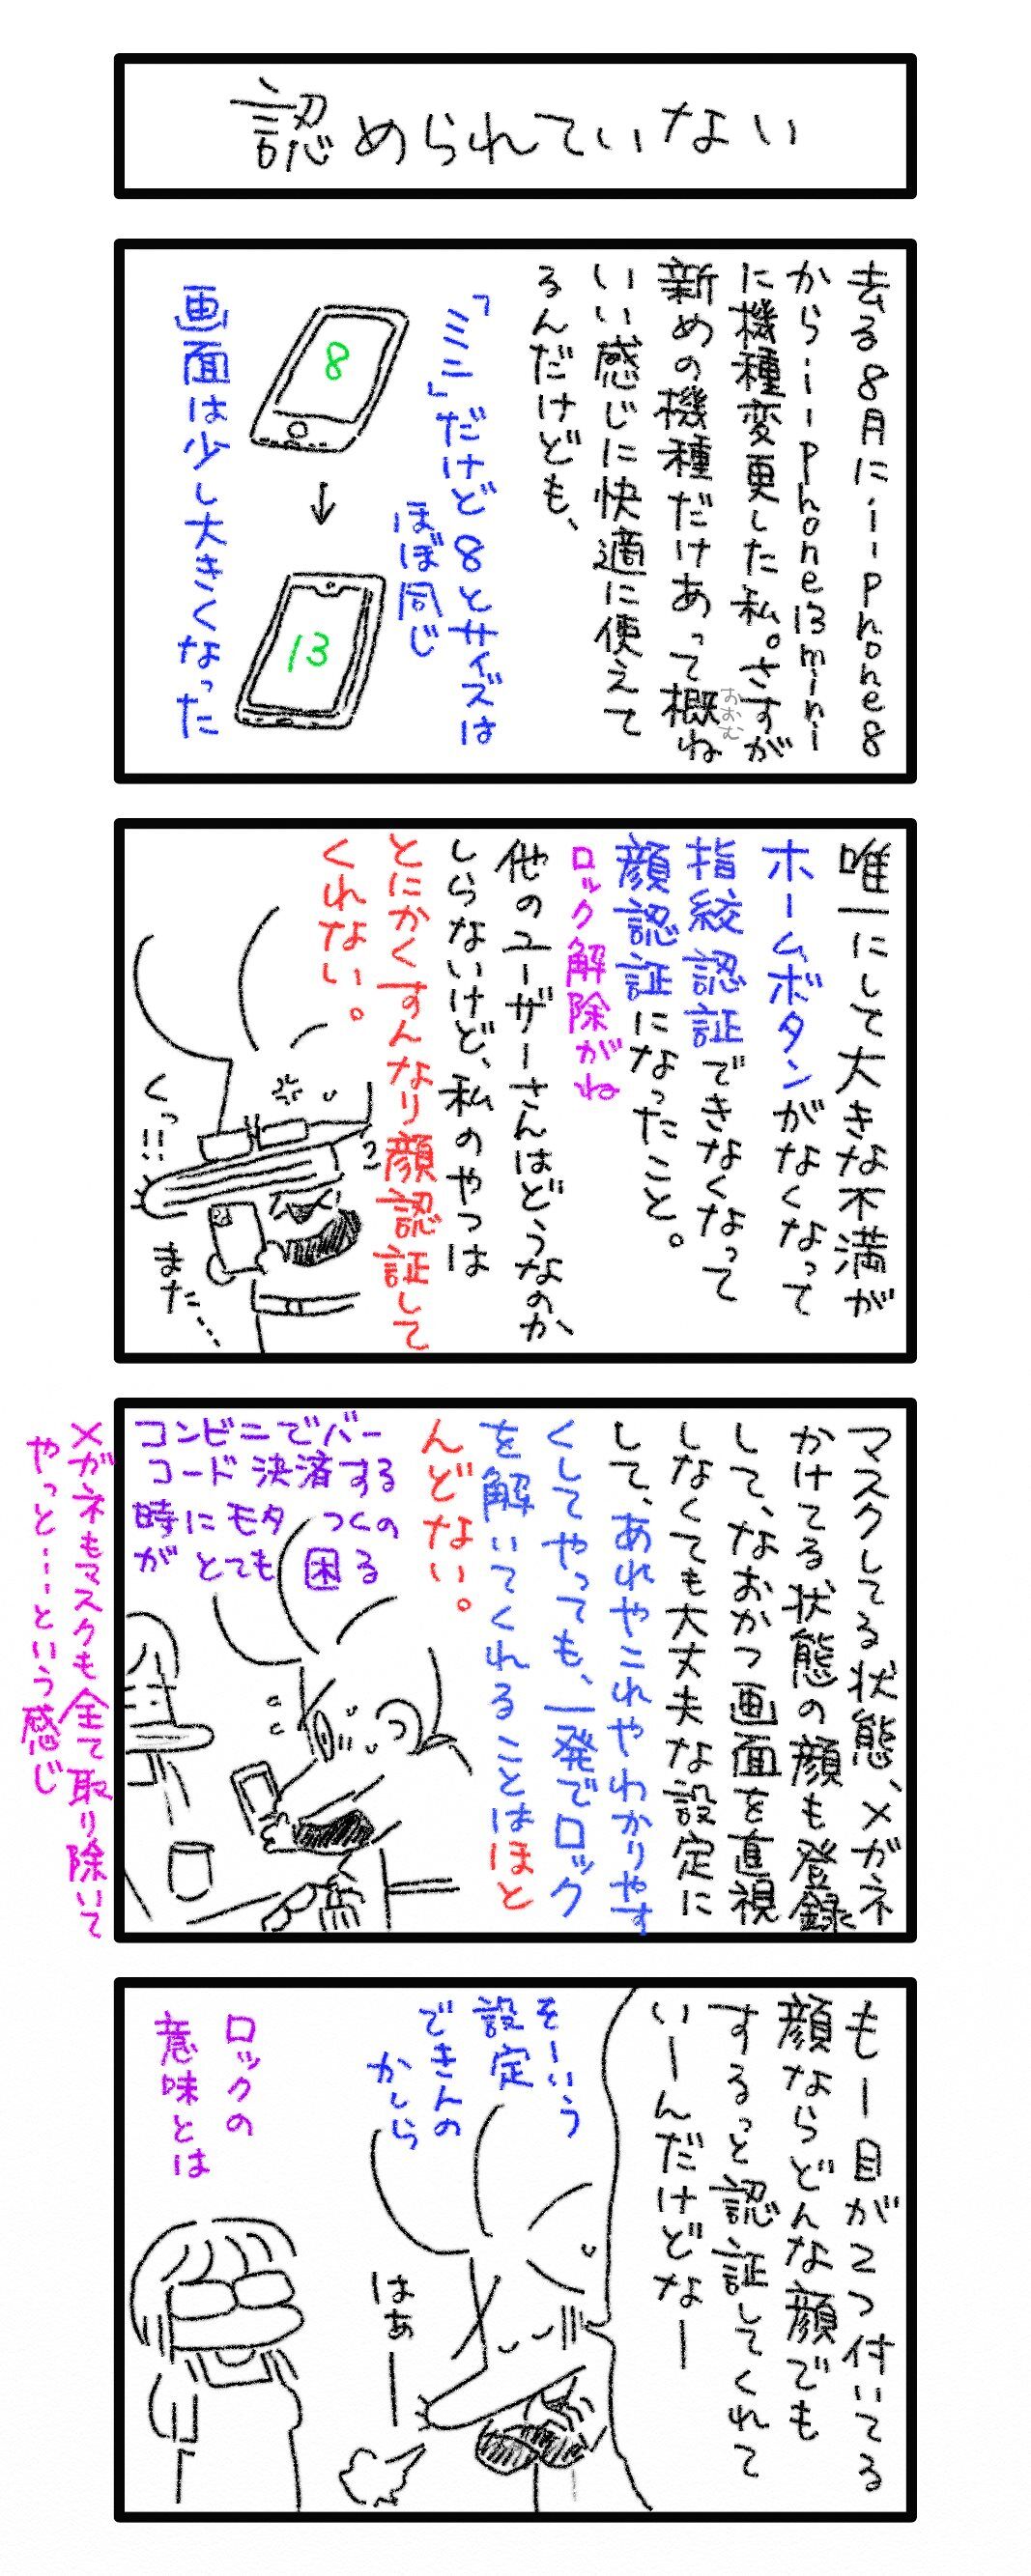 認められていない
去る8月にiーphone8
からiーphone13mini
に機種変更した私。さすが
新めの機種だけあって概ね
おおむ
いい感じに快適に使えて
るんだけども、
「ミニ」だけど8とサイズは
ほぼ同じ
8
↓
13
画面は少し大きくなった
唯一にして大きな不満が
ホームボタンがなくなって
指紋認証できなくなって
顔認証になったこと。
ロック解除がね
他のユーザーさんはどうなのか
しらないけど、私のやつは
とにかくすんなり顔認証して
くれない。
くっ!!
まだ…
マスクしてる状態、メガネ
かけてる状態の顔も登録
して、なおかつ画面を直視
しなくても大丈夫な設定に
して、あれやこれやわかりやす
くしてやっても、一発でロック
を解いてくれることはほと
んどない。
コンビニでバー
コード決済する
時にモタつくの
がとても困る
メガネもマスクも全て取り除いて
やっと…という感じ
もー目が2つ付いてる
顔ならどんな顔でも
するっと認証してくれて
いーんだけどなー
そーいう
設定
できんの
かしら
はぁー
ロックの
意味とは